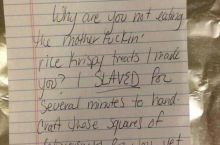 Why are you not eating
the mother fuckin'
rice krispy treats I made
you? I SLAVED for
several minutes to hand
craft those squares of
for you yet